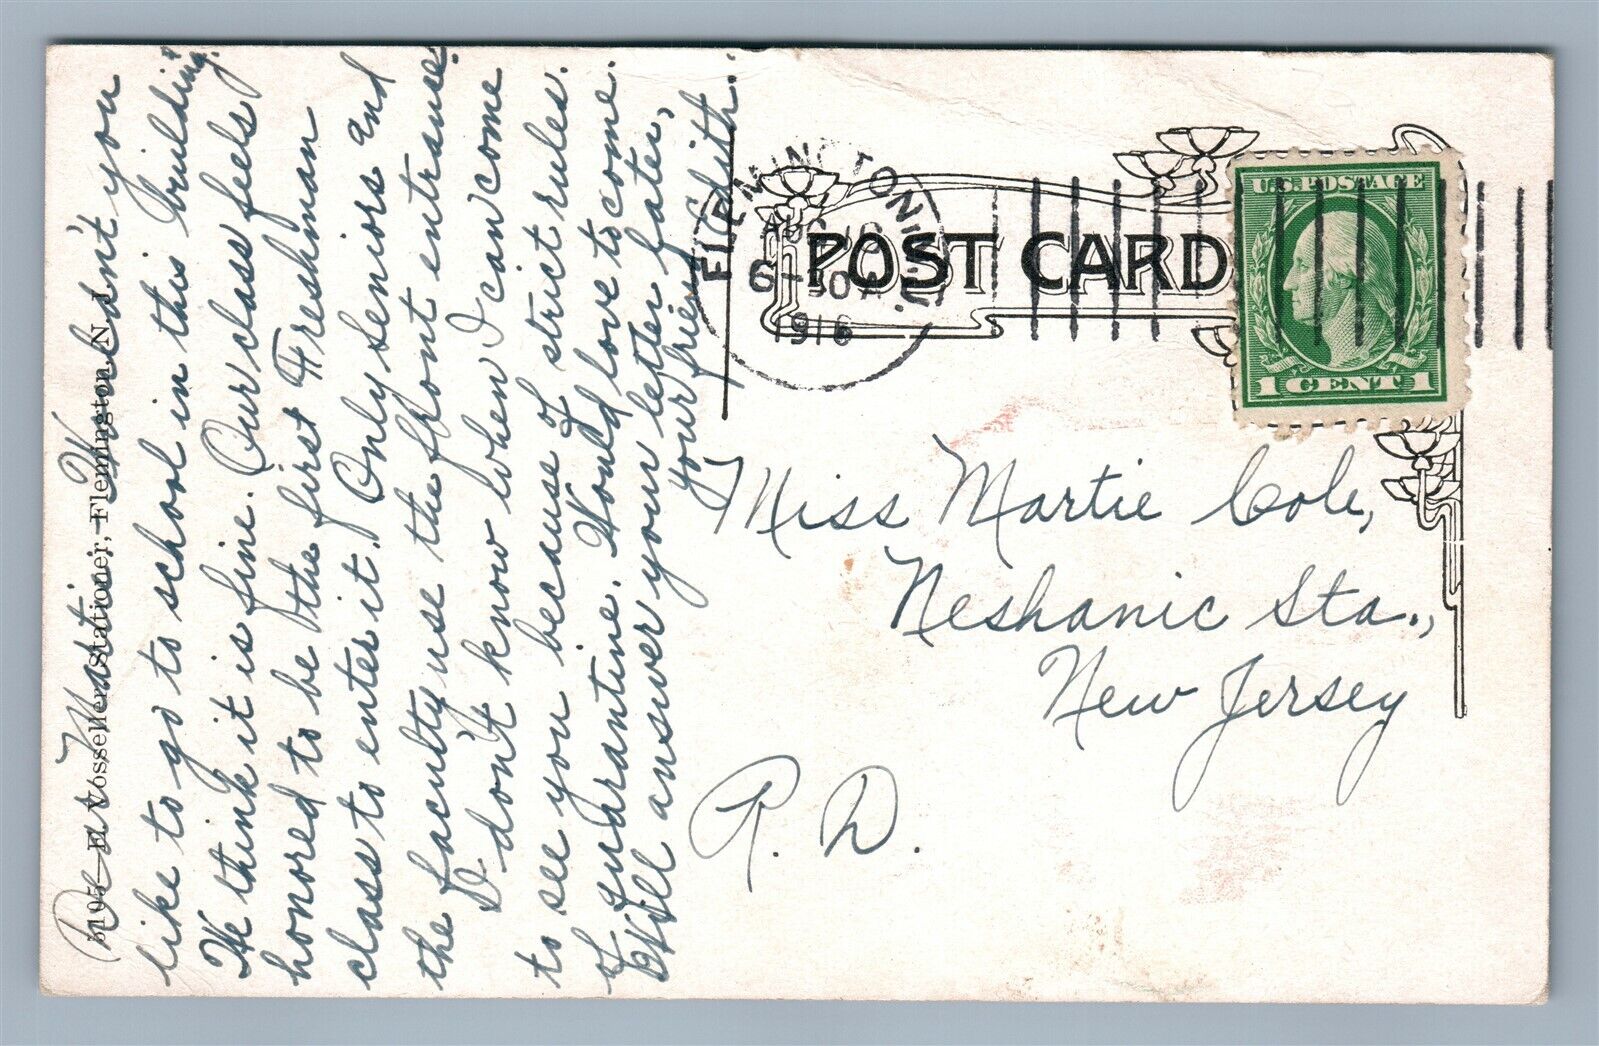 Dear Martie:- Wouldn't you
like to go to school in this building?
We think it is fine. Our class feels
honored to be the first Freshman
class to enter it. Only Seniors and
the faculty use the front entranse.
I don't know when I can come
to see you because of strict rules
of quarantine. Would love to come.
Will answer your letter later,
your friend Edith.
5105—E. Vosseller, Stationer, Flemington, N.J.
POST CARD
FLEMINGTON, N.J.
6-30A
1916
U.S. POSTAGE
1 CENT 1
Miss Martie Cole,
Neshanic Sta.,
New Jersey
R. D.